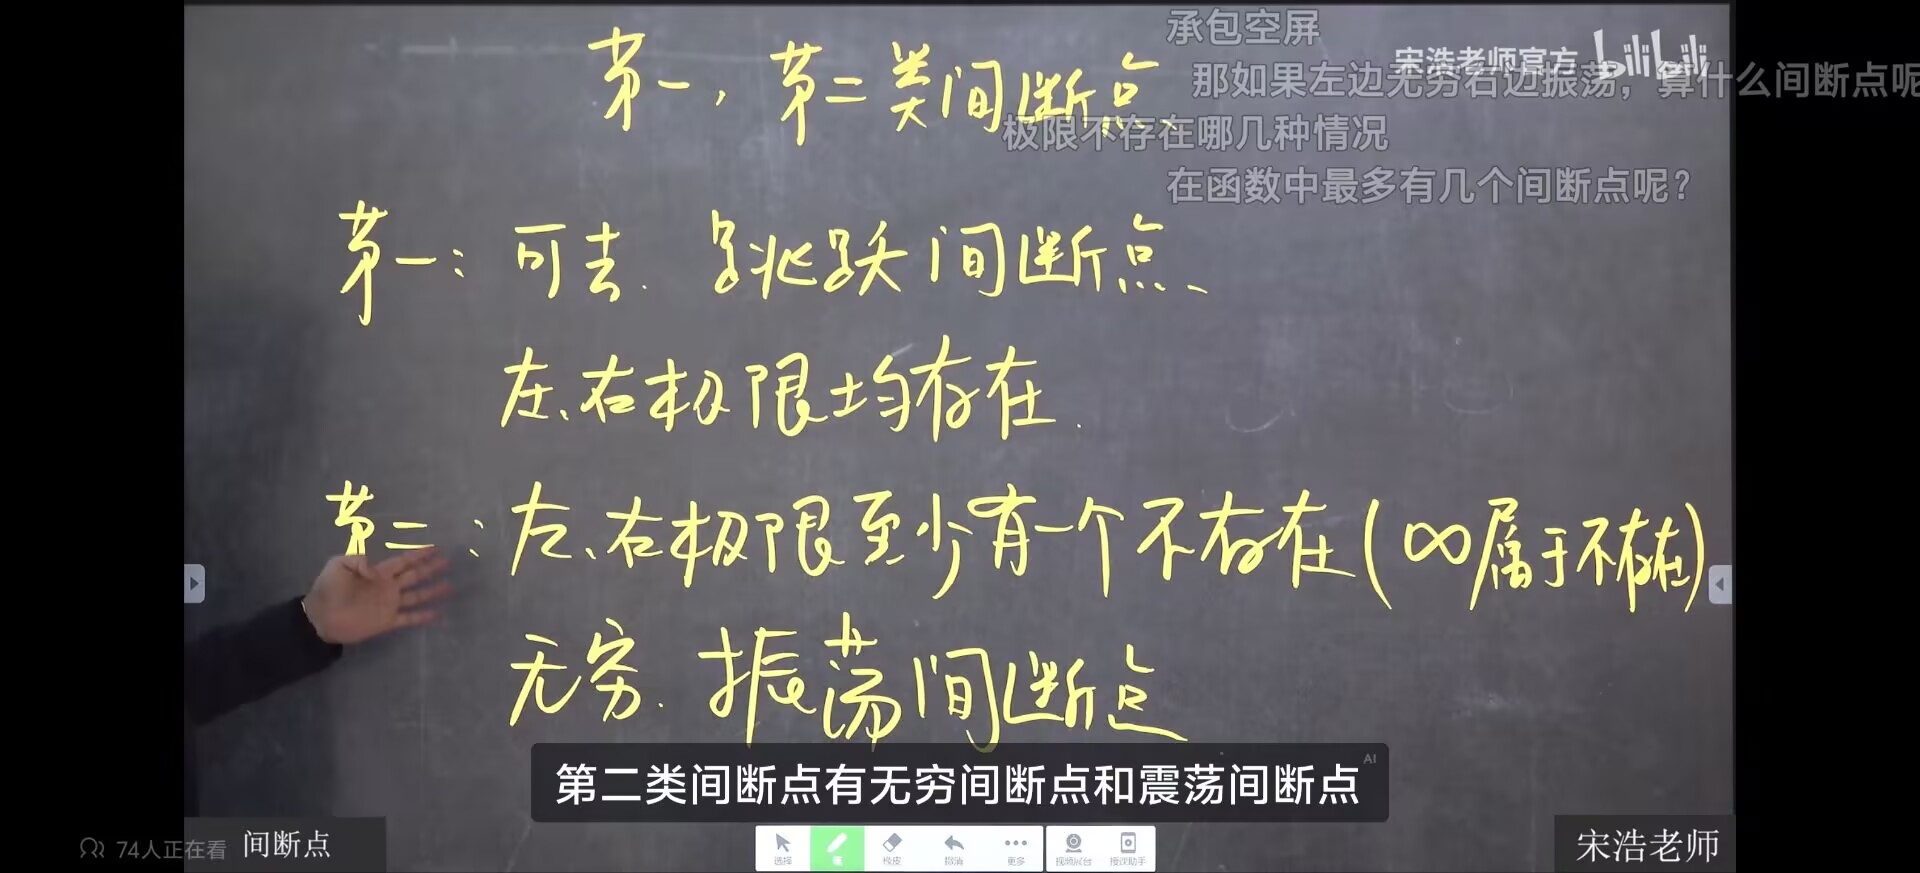 承包空屏
宋浩老师官方 bilibili
那如果左边无穷右边振荡，算什么间断点呢
极限不存在哪几种情况
在函数中最多有几个间断点呢？
第一，第二类间断点
第一：可去．跳跃间断点、
左、右极限均存在．
第二：左、右极限至少有一个不存在(∞属于不存在)
无穷．振荡间断点
第二类间断点有无穷间断点和震荡间断点
AI
74人正在看
间断点
选择 笔 橡皮 撤消 更多 视频展台 授课助手
宋浩老师